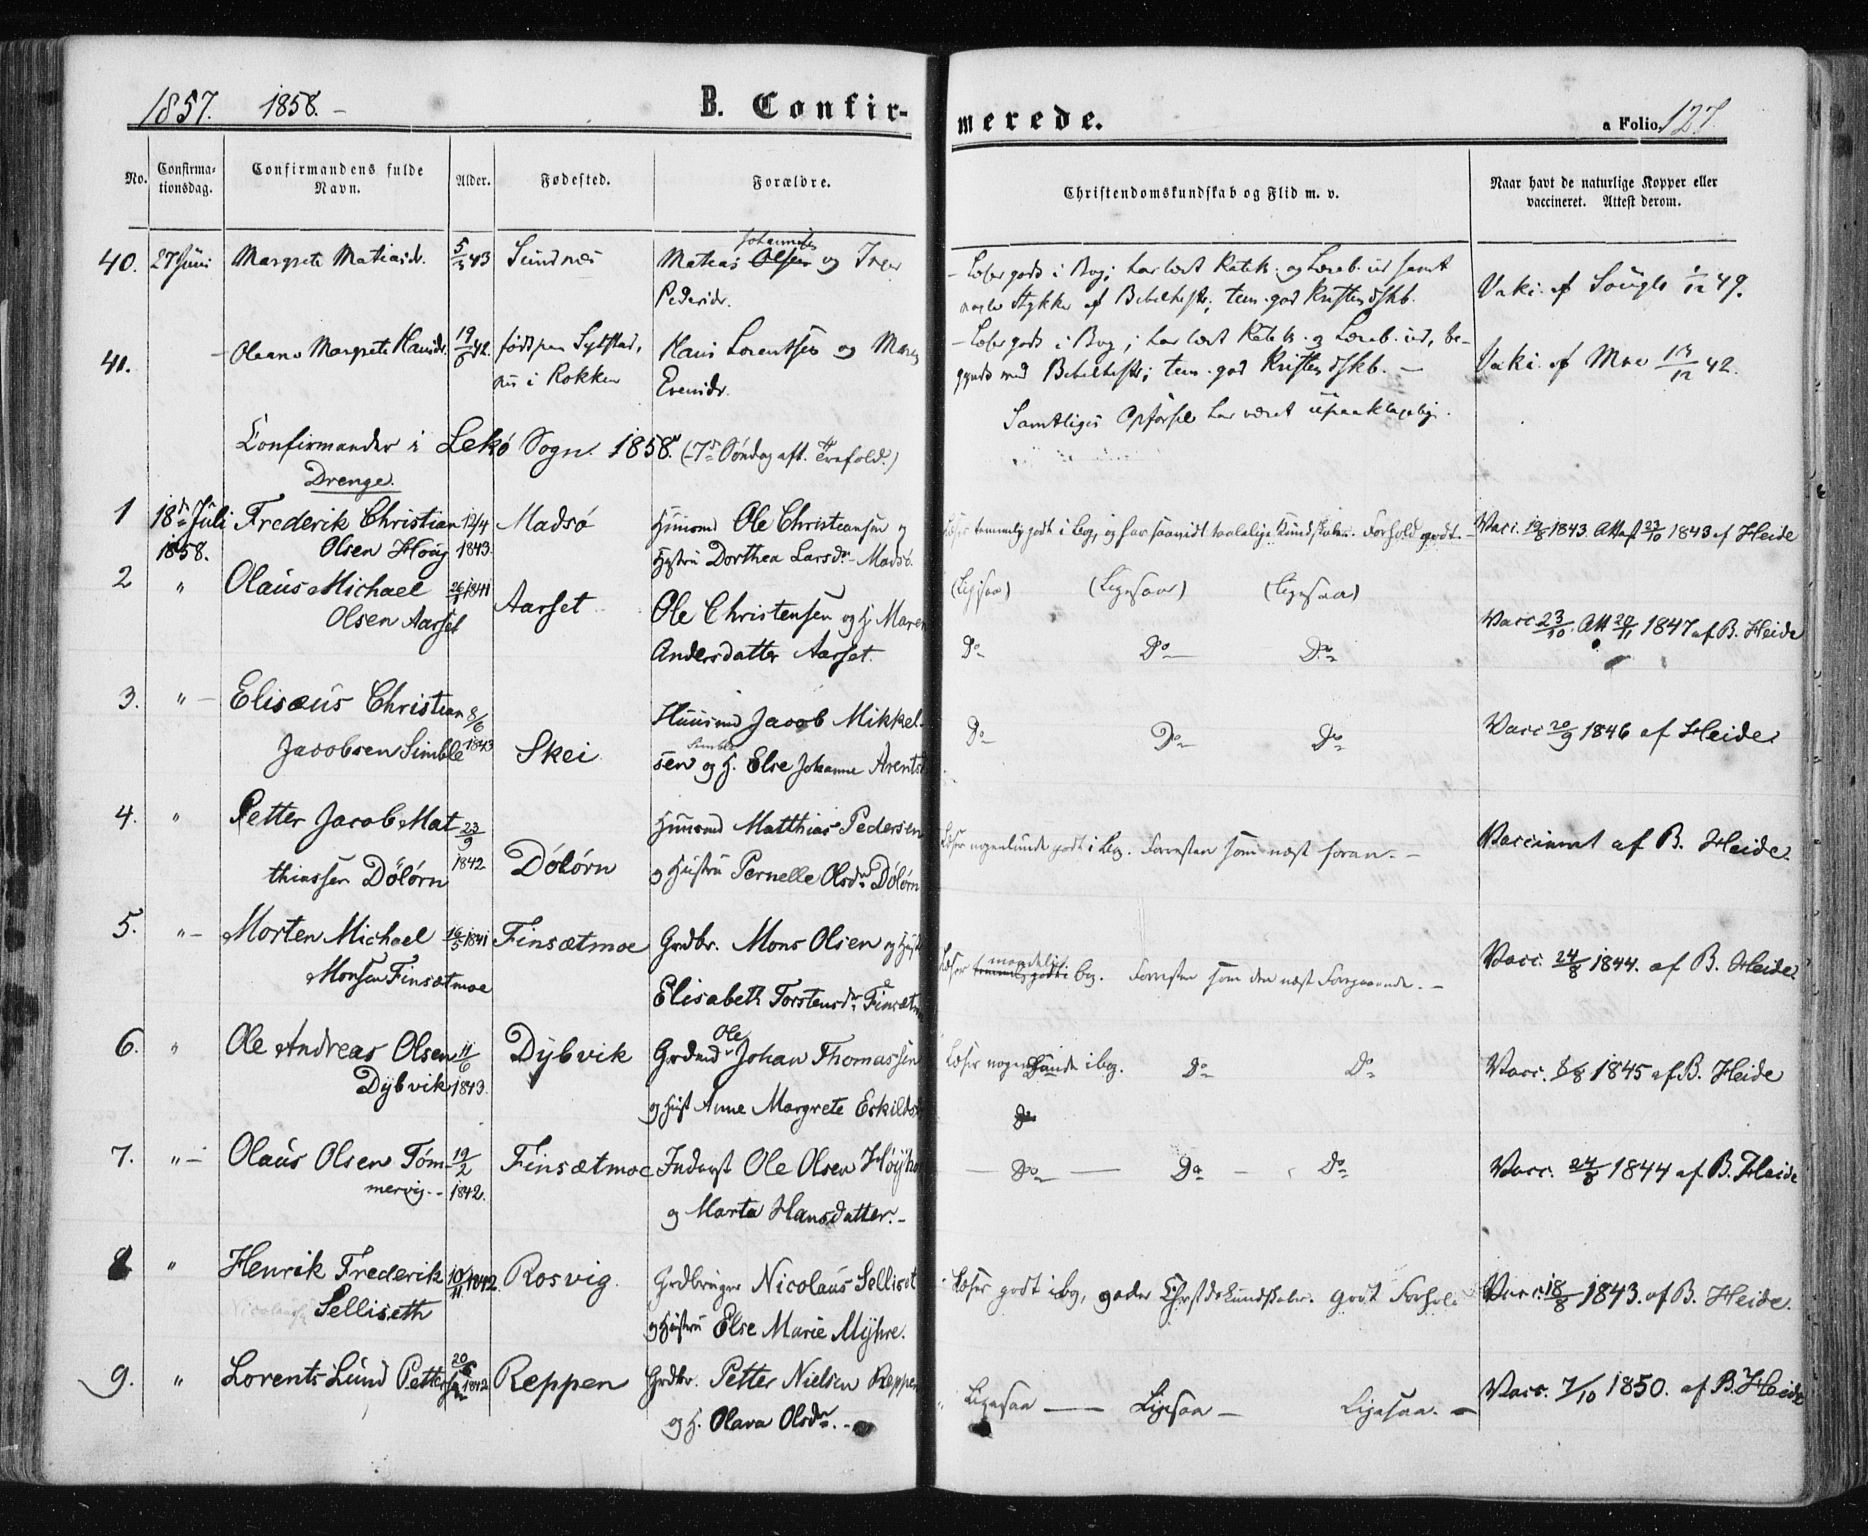 1857. 1858. –
B. Confir-
merede.
a Folio 127.
No.
Confirma-
tionsdag.
Confirmandens fulde
Navn.
Alder.
Fødested.
Forældre.
Christendomskundskab og Flid m. v.
Naar havt de naturlige Kopper eller
vaccineret. Attest derom.
40. 27 Juni Margrete Matiasd. 5/3 43 Sundnes Matias Johannes Olsen og
Pedersdr.
Læser godt i Bog; har lært Katek. og Læreb. ud samt
nogle Stykker af Bibelhist.; tem. god Kristendskb.
Vaki. af 49.
41. Oleana Margrete Hansdr. 19/6 42. født paa
nu i Rokken
Hans Lorentsen og Maren
Evensdr.
– Læser godt i Bog; har lært Katek. og Læreb. ud, be-
gyndt med Bibelhist.; tem. god Kristendskb. –
Vaki. af Moe 13/12 42.
Samtliges Opførsel har været upaaklagelig.
Confirmander i Lekø Sogn 1858. (7de Søndag aft. Trefold.)
Drenge.
1 18de Juli Frederik Christian 12/4 Madsø Huusmd Ole Christiansen og
1858. Olsen Houg 1843. Hustru Dorthea Larsdr – Madsø.
Læser temmelig godt i Bog, og har saavidt taalelige Kundskaber. Forhold godt. –
Vacc. 19/8 1843. Attest 23/10 1843 af Heide
2 " Olaus Michael 26/1 1841 Aarset
Olsen Aarset
Ole Christensen og H. Maren
Andersdatter Aarset.
(Ligesaa) (Ligesaa) (Ligesaa)
Do Do – Do
Vacc 23/10. Att 20/11 1847 af B. Heide
3. " – Elisæus Christian 8/6
Jacobsen Simble 1843 Skei
Huusmd Jacob Mikkel-
sen Simble og H. Else Johanne Arents
Do Do Do
Vacc 20/9 1846 af Heide.
4. " Petter Jacob Mat 23/9
thiassen Dölørn 1842 Dölørn
Huusmd Matthias Pedersen
og Hustru Pernelle Olsdr Dölørn
Læser nogenlunde godt i bog. Forresten som næst foran. –
Vaccineret af B. Heide.
5. " – Morten Michael 16/5 1841 Finsætmoe
Monsen Finsætmoe
Grdbr. Mons Olsen og Hust
Elisabeth Torstensdr Finsætm
Læser temmelig godt i maadelig bog. Forresten som den næst Foregaaende. –
Vacc. 24/8 1844. af B. Heide.
6. " Ole Andreas Olsen 11/6 Dybvik
Dybvik 1843.
Grdmd Ole Johan Thomassen
og Hust Anne Margrete Eskildsd
Læser nogenlunde i bog. Do Do
Do
Vacc. 6/8 1845 af B. Heide
7. " – Olaus Olsen Töm- 19/2 Finsætmoe
mervig. – 1842.
Inderst Ole Olsen
og Marta Hansdatter. –
– Do – Do – Do
Vacc. 24/8 1844 af B. Heide
8 " Henrik Frederik 10/11 1842. Rosvig.
Nicolausen Selliseth
Grdbruger Nicolaus Selliset
og Hustru Else Marie Myhre.
Læser godt i bog, goder Chrstdskundskaber. godt Forhold
Vacc. 18/8 1843. af B. Heide.
9. " Lorents Lund Pettersen 20/6 1842 Reppen
Grdbr. Petter Nielsen Reppen
og H. Olava Olsdr. –
Ligesaa – Ligesaa – Ligesaa. –
Vacc. 7/10 1850. af B. Heide